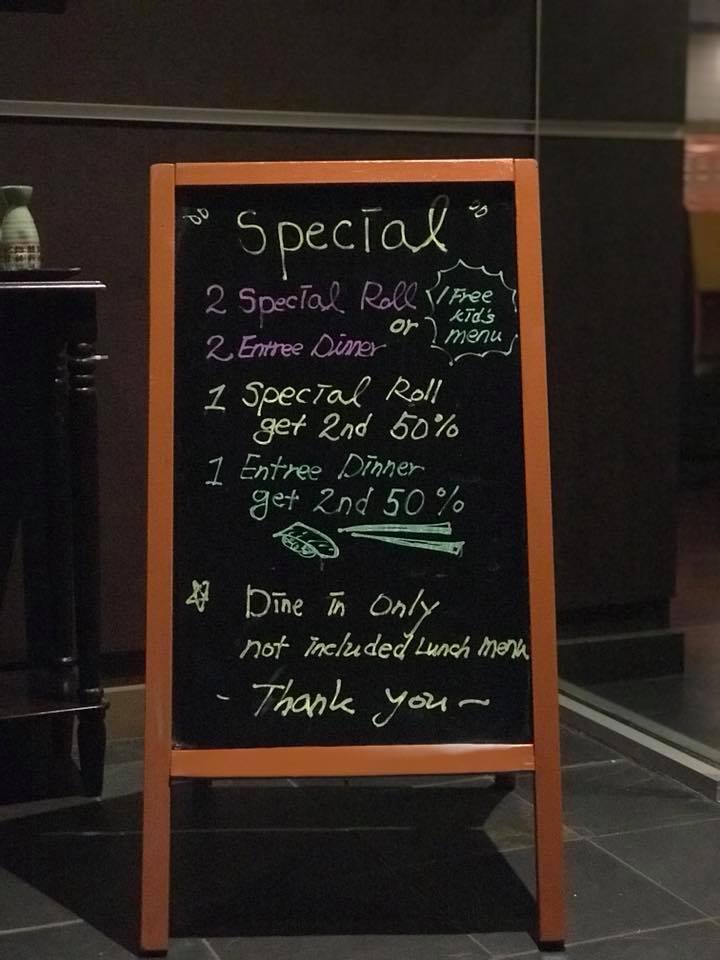 Special
2 Special Roll
or
2 Entree Dinner
1 Free
kid's
menu
1 Special Roll
get 2nd 50%
1 Entree Dinner
get 2nd 50%
Dine in only
not included Lunch menu
- Thank you ~